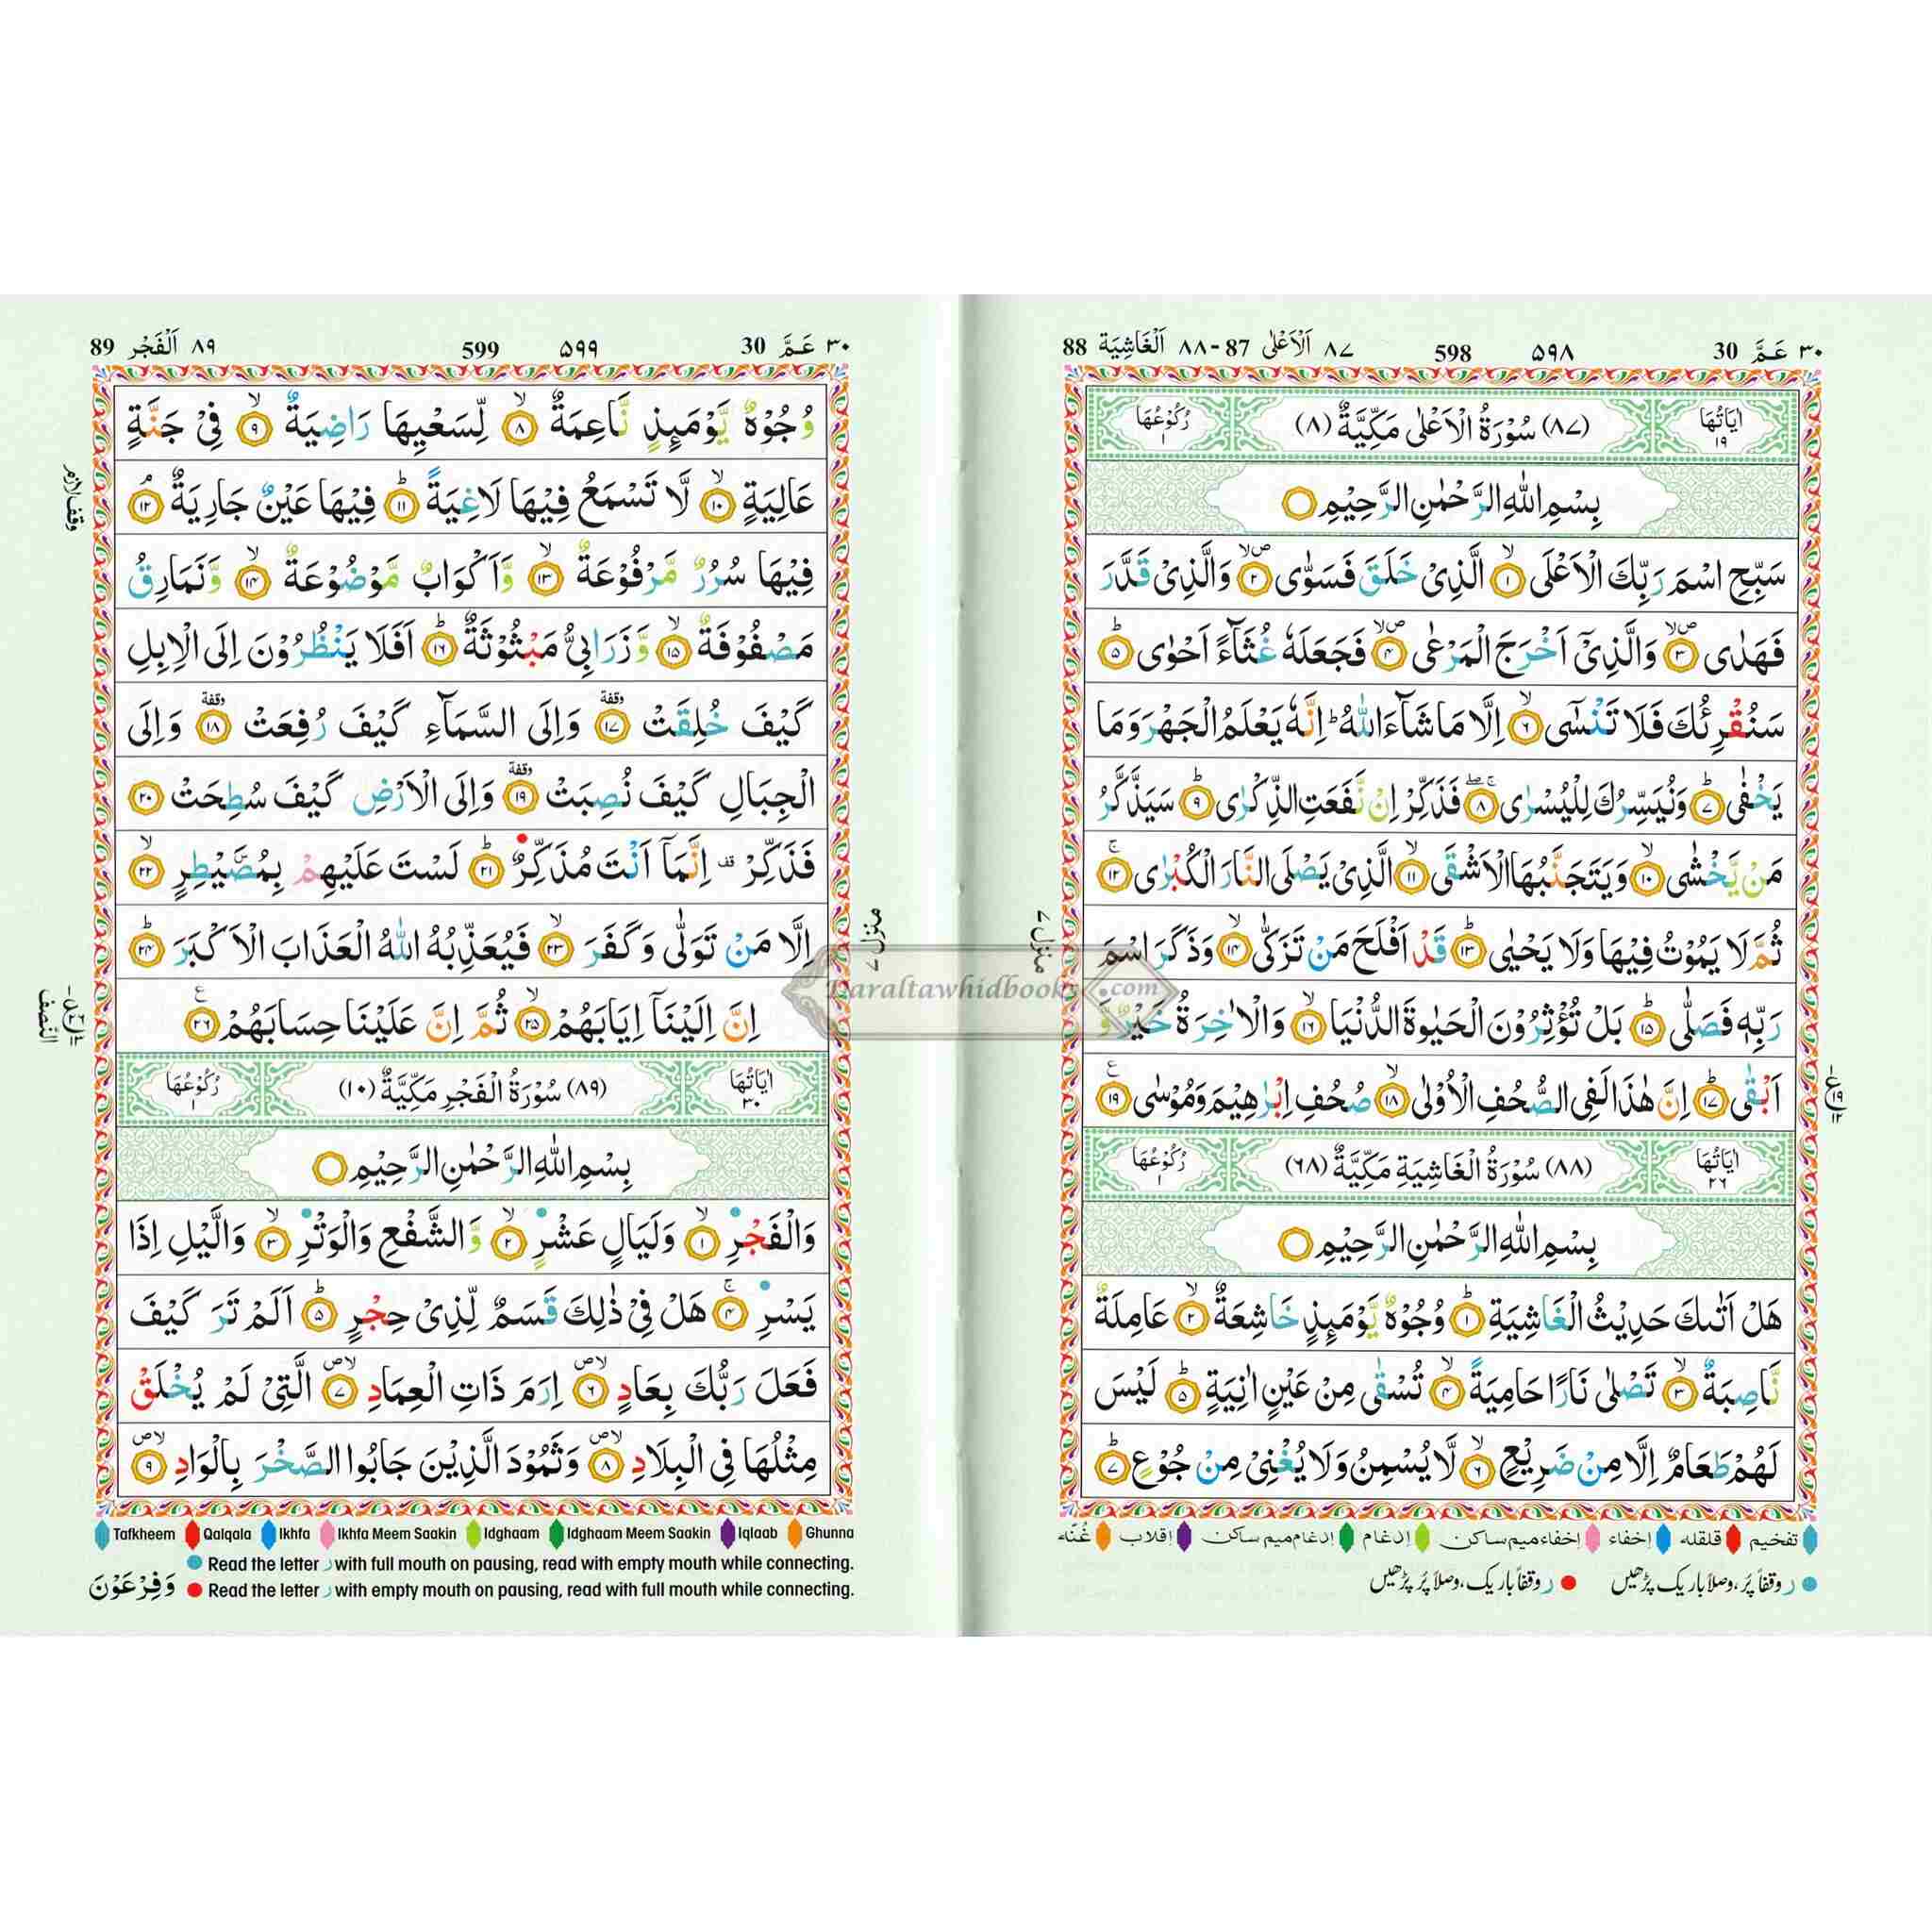 ٣٠ عَمَّ 30
٥٩٨ 598
٨٧ اَلْاَعْلٰى 87 - ٨٨ اَلْغَاشِيَة 88
اٰيَاتُهَا ١٩
(٨٧) سُوْرَةُ الْاَعْلٰى مَكِّيَّةٌ (٨)
رُكُوْعُهَا ١
بِسْمِ اللّٰهِ الرَّحْمٰنِ الرَّحِيْمِ
سَبِّحِ اسْمَ رَبِّكَ الْاَعْلَى ١ الَّذِىْ خَلَقَ فَسَوّٰى ٢ وَالَّذِىْ قَدَّرَ
فَهَدٰى ٣ وَالَّذِىْٓ اَخْرَجَ الْمَرْعٰى ٤ فَجَعَلَهٗ غُثَآءً اَحْوٰى ٥
سَنُقْرِئُكَ فَلَا تَنْسٰٓى ٦ اِلَّا مَا شَآءَ اللّٰهُ ؕ اِنَّهٗ يَعْلَمُ الْجَهْرَ وَمَا
يَخْفٰى ٧ وَنُيَسِّرُكَ لِلْيُسْرٰى ٨ فَذَكِّرْ اِنْ نَّفَعَتِ الذِّكْرٰى ٩ سَيَذَّكَّرُ
مَنْ يَّخْشٰى ١٠ وَيَتَجَنَّبُهَا الْاَشْقَى ١١ الَّذِىْ يَصْلَى النَّارَ الْكُبْرٰى ١٢
ثُمَّ لَا يَمُوْتُ فِيْهَا وَلَا يَحْيٰى ١٣ قَدْ اَفْلَحَ مَنْ تَزَكّٰى ١٤ وَذَكَرَ اسْمَ
رَبِّهٖ فَصَلّٰى ١٥ بَلْ تُؤْثِرُوْنَ الْحَيٰوةَ الدُّنْيَا ١٦ وَالْاٰخِرَةُ خَيْرٌ وَّ
اَبْقٰى ١٧ اِنَّ هٰذَا لَفِى الصُّحُفِ الْاُوْلٰى ١٨ صُحُفِ اِبْرٰهِيْمَ وَمُوْسٰى ١٩
اٰيَاتُهَا ٢٦
(٨٨) سُوْرَةُ الْغَاشِيَةِ مَكِّيَّةٌ (٦٨)
رُكُوْعُهَا ١
بِسْمِ اللّٰهِ الرَّحْمٰنِ الرَّحِيْمِ
هَلْ اَتٰىكَ حَدِيْثُ الْغَاشِيَةِ ١ وُجُوْهٌ يَّوْمَئِذٍ خَاشِعَةٌ ٢ عَامِلَةٌ
نَّاصِبَةٌ ٣ تَصْلٰى نَارًا حَامِيَةً ٤ تُسْقٰى مِنْ عَيْنٍ اٰنِيَةٍ ٥ لَيْسَ
لَهُمْ طَعَامٌ اِلَّا مِنْ ضَرِيْعٍ ٦ لَّا يُسْمِنُ وَلَا يُغْنِىْ مِنْ جُوْعٍ ٧
منزل ٧
تفخيم قلقله إخفاء إخفاء ميم ساكن إدغام إدغام ميم ساكن إقلاب غُنّه
ر وقفاً پُر، وصلاً باریک پڑھیں ر وقفاً باریک، وصلاً پُر پڑھیں
٣٠ عَمَّ 30
٥٩٩ 599
٨٩ اَلْفَجْر 89
وُجُوْهٌ يَّوْمَئِذٍ نَّاعِمَةٌ ٨ لِّسَعْيِهَا رَاضِيَةٌ ٩ فِىْ جَنَّةٍ
عَالِيَةٍ ١٠ لَّا تَسْمَعُ فِيْهَا لَاغِيَةً ١١ فِيْهَا عَيْنٌ جَارِيَةٌ ١٢
فِيْهَا سُرُرٌ مَّرْفُوْعَةٌ ١٣ وَّاَكْوَابٌ مَّوْضُوْعَةٌ ١٤ وَّنَمَارِقُ
مَصْفُوْفَةٌ ١٥ وَّزَرَابِىُّ مَبْثُوْثَةٌ ١٦ اَفَلَا يَنْظُرُوْنَ اِلَى الْاِبِلِ
كَيْفَ خُلِقَتْ ١٧ وَاِلَى السَّمَآءِ كَيْفَ رُفِعَتْ ١٨ وَاِلَى
الْجِبَالِ كَيْفَ نُصِبَتْ ١٩ وَاِلَى الْاَرْضِ كَيْفَ سُطِحَتْ ٢٠
فَذَكِّرْ قف اِنَّمَآ اَنْتَ مُذَكِّرٌ ٢١ لَسْتَ عَلَيْهِمْ بِمُصَۜيْطِرٍ ٢٢
اِلَّا مَنْ تَوَلّٰى وَكَفَرَ ٢٣ فَيُعَذِّبُهُ اللّٰهُ الْعَذَابَ الْاَكْبَرَ ٢٤
اِنَّ اِلَيْنَآ اِيَابَهُمْ ٢٥ ثُمَّ اِنَّ عَلَيْنَا حِسَابَهُمْ ٢٦
اٰيَاتُهَا ٣٠
(٨٩) سُوْرَةُ الْفَجْرِ مَكِّيَّةٌ (١٠)
رُكُوْعُهَا ١
بِسْمِ اللّٰهِ الرَّحْمٰنِ الرَّحِيْمِ
وَالْفَجْرِ ١ وَلَيَالٍ عَشْرٍ ٢ وَّالشَّفْعِ وَالْوَتْرِ ٣ وَالَّيْلِ اِذَا
يَسْرِ ٤ هَلْ فِىْ ذٰلِكَ قَسَمٌ لِّذِىْ حِجْرٍ ٥ اَلَمْ تَرَ كَيْفَ
فَعَلَ رَبُّكَ بِعَادٍ ٦ اِرَمَ ذَاتِ الْعِمَادِ ٧ الَّتِىْ لَمْ يُخْلَقْ
مِثْلُهَا فِى الْبِلَادِ ٨ وَثَمُوْدَ الَّذِيْنَ جَابُوا الصَّخْرَ بِالْوَادِ ٩
وقف لازم
النصف
منزل ٧
Tafkheem Qalqala Ikhfa Ikhfa Meem Saakin Idghaam Idghaam Meem Saakin Iqlaab Ghunna
Read the letter ر with full mouth on pausing, read with empty mouth while connecting.
Read the letter ر with empty mouth on pausing, read with full mouth while connecting.
وَفِرْعَوْنَ
Daraltawhidbooks.com